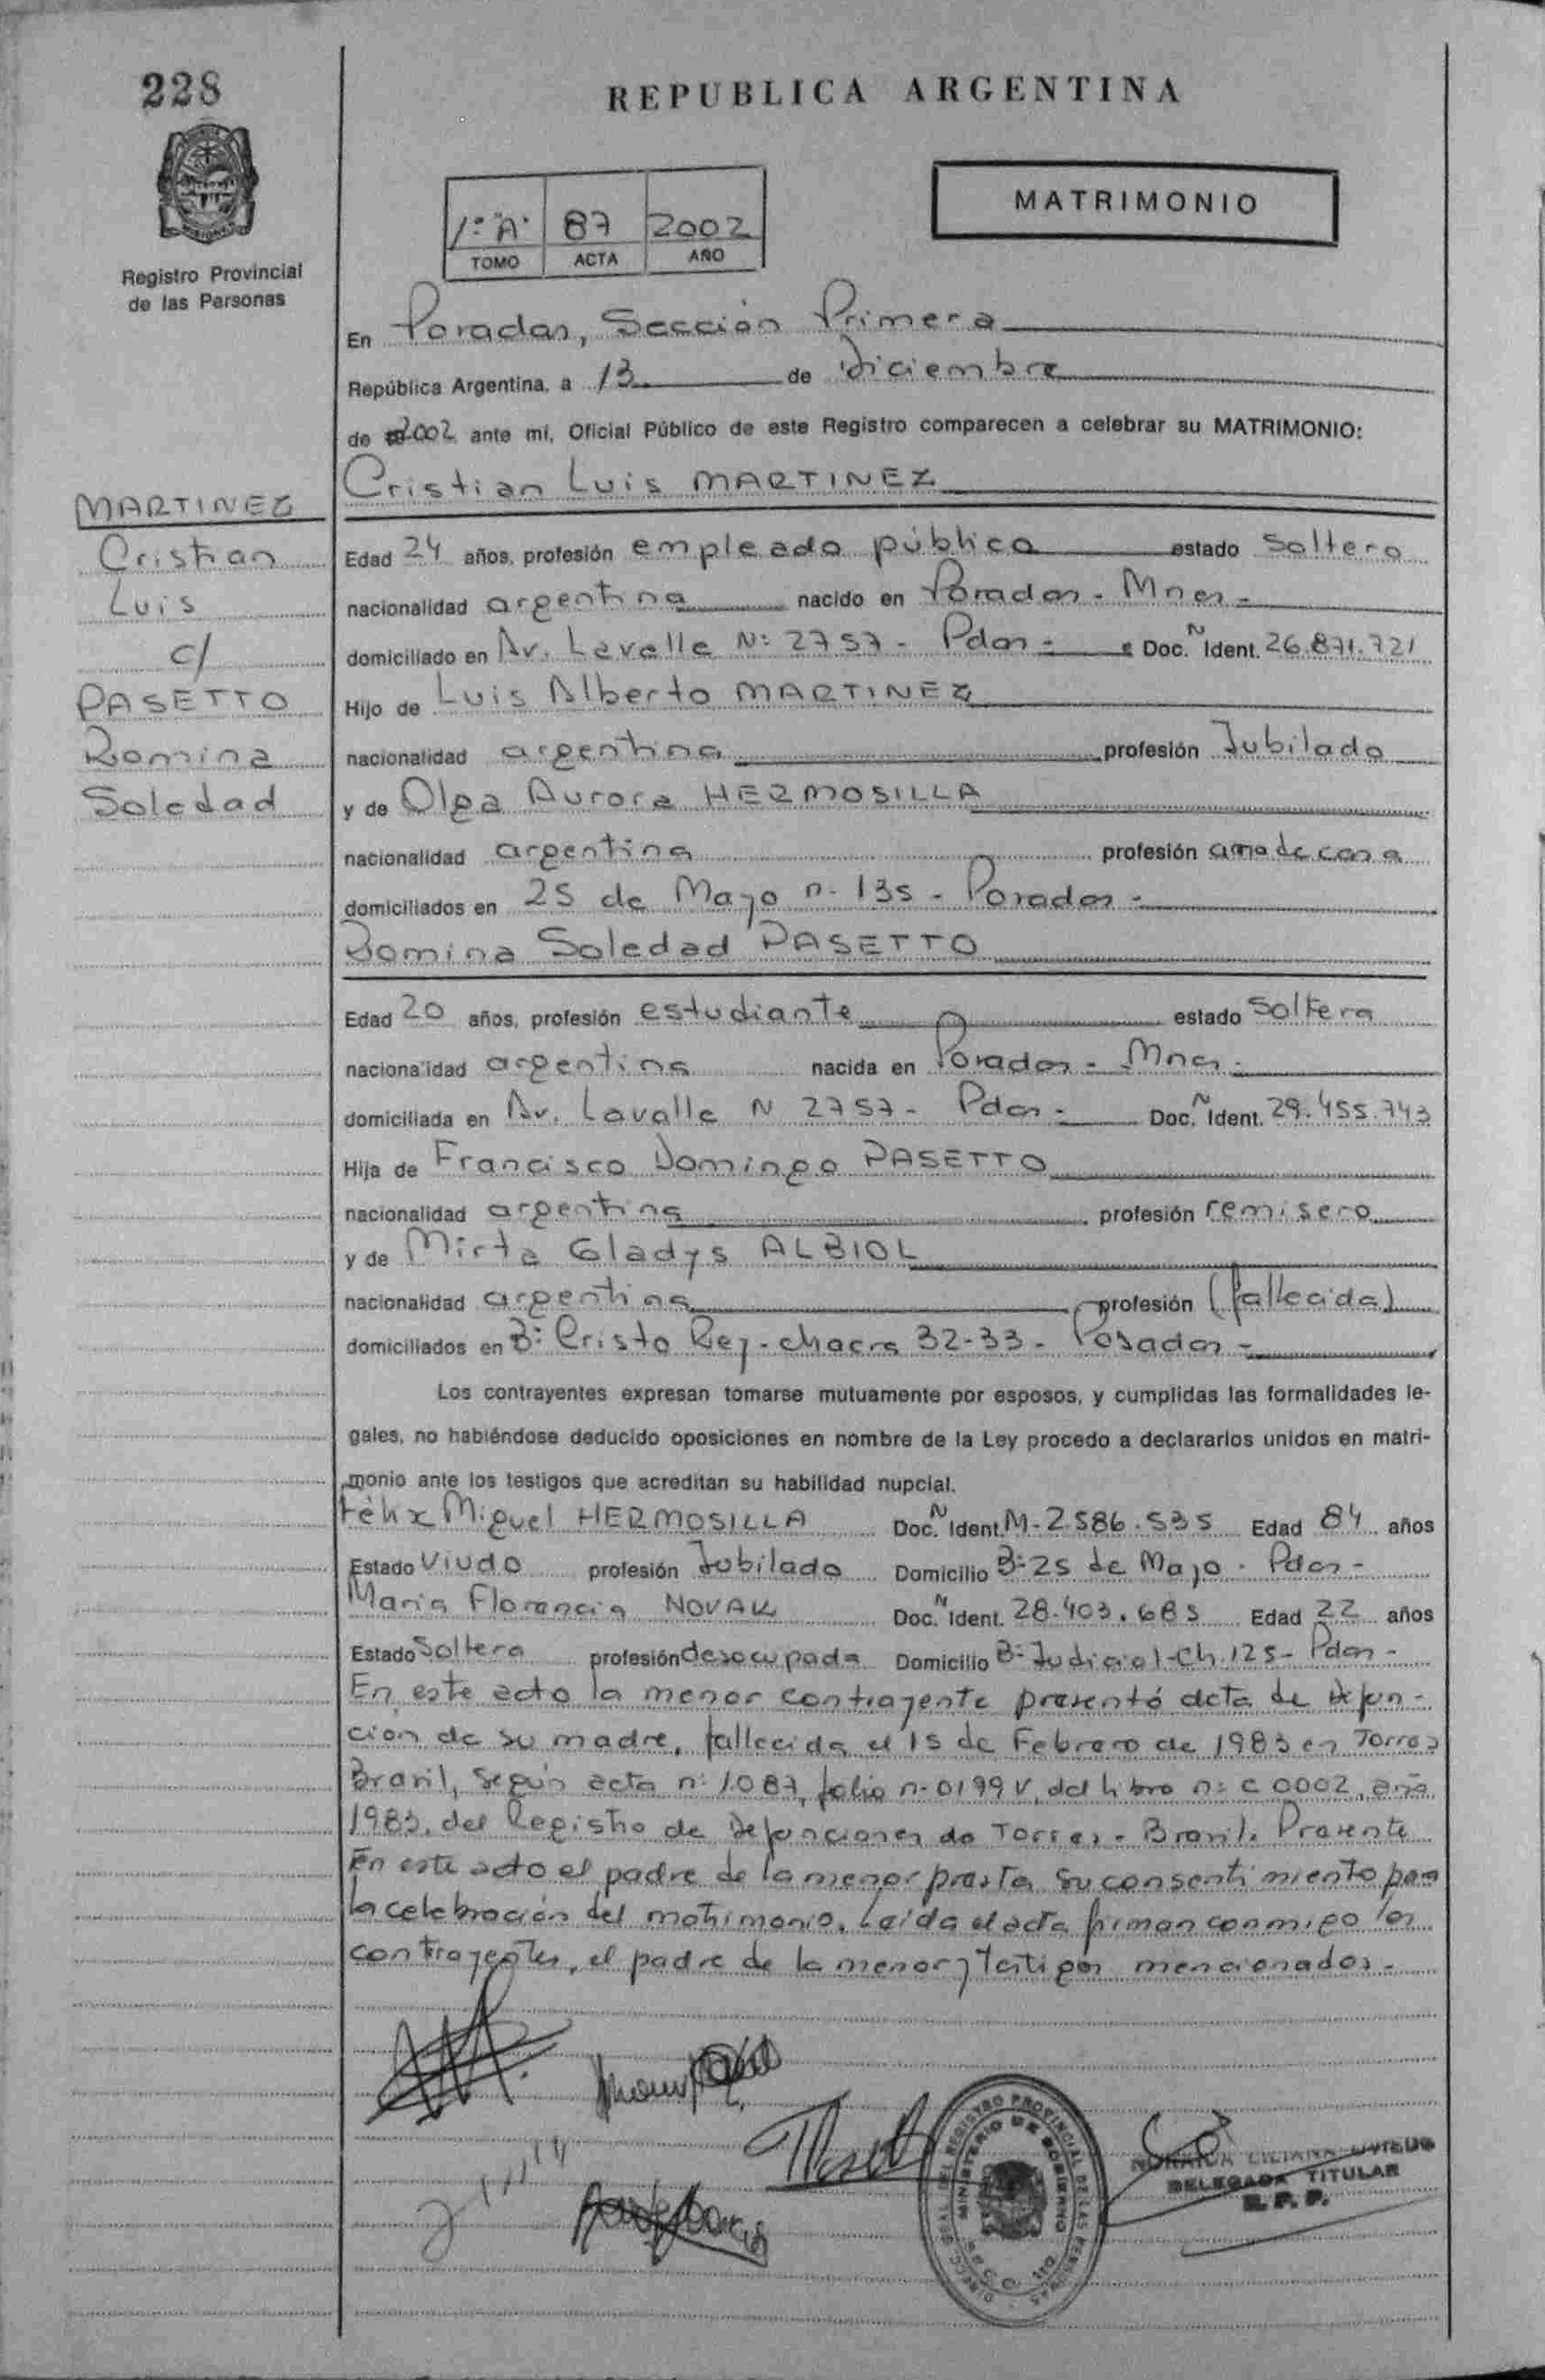 228
REPUBLICA ARGENTINA
MATRIMONIO
1º "A" 87 2002
TOMO ACTA AÑO
Registro Provincial
de las Personas
En Posadas, Sección Primera
República Argentina, a 13 de Diciembre
de 2002 ante mí, Oficial Público de este Registro comparecen a celebrar su MATRIMONIO:
Cristian Luis MARTINEZ
MARTINEZ
Cristian
Luis
c/
PASETTO
Romina
Soledad
Edad 24 años, profesión empleado público estado soltero
nacionalidad argentina nacido en Posadas - Mnes -
domiciliado en Av. Lavalle Nº 2757 - Pdas - Doc. N Ident. 26.871.721
Hijo de Luis Alberto MARTINEZ
nacionalidad argentina profesión Jubilado
y de Olga Aurora HERMOSILLA
nacionalidad argentina profesión ama de casa
domiciliados en 25 de Mayo n- 135 - Posadas -
Romina Soledad PASETTO
Edad 20 años, profesión estudiante estado soltera
nacionalidad argentina nacida en Posadas - Mnes -
domiciliada en Av. Lavalle N 2757 - Pdas - Doc. N Ident. 29.455.743
Hija de Francisco Domingo PASETTO
nacionalidad argentina profesión remisero
y de Mirta Gladys ALBIOL
nacionalidad argentina profesión (fallecida)
domiciliados en Bº Cristo Rey - chacra 32-33 - Posadas -
Los contrayentes expresan tomarse mutuamente por esposos, y cumplidas las formalidades le-
gales, no habiéndose deducido oposiciones en nombre de la Ley procedo a declararlos unidos en matri-
monio ante los testigos que acreditan su habilidad nupcial.
Félix Miguel HERMOSILLA Doc. N Ident. M-2.586.535 Edad 84 años
Estado Viudo profesión Jubilado Domicilio Bº 25 de Mayo - Pdas -
Maria Florencia NOVAK Doc. N Ident. 28.403.685 Edad 22 años
Estado Soltera profesión desocupada Domicilio Bº Judicial - Ch. 125 - Pdas -
En este acto la menor contrayente presentó acta de defun-
ción de su madre, fallecida el 15 de Febrero de 1983 en Torres
Brasil, según acta nº 1.087, folio n- 0199 V, del libro nº C 0002, año
1983, del Registro de Defunciones de Torres - Brasil. Presente
en este acto el padre de la menor presta su consentimiento para
la celebración del matrimonio. Leída el acta firman conmigo los
contrayentes, el padre de la menor y testigos mencionados -
DIRECC. GRAL. DEL REGISTRO PROVINCIAL DE LAS PERSONAS
MINISTERIO DE GOBIERNO
LILIANA OVIEDO
DELEGADA TITULAR
R. P. P.